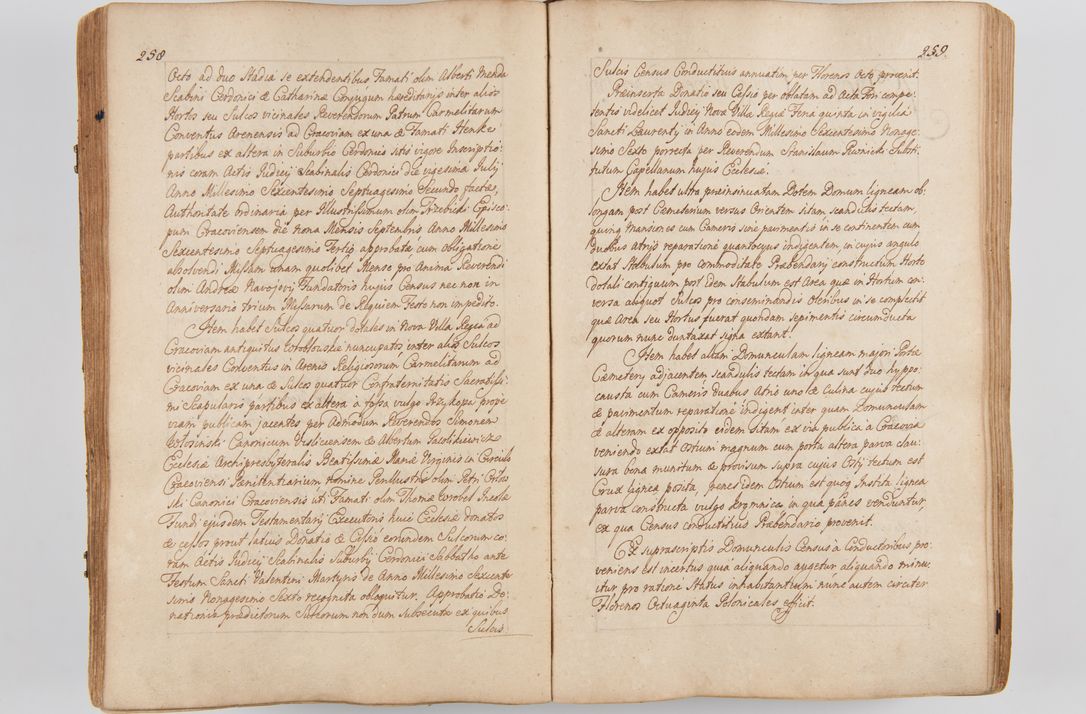 258
Octo ad duo Stadia se extendentibus Famati olim Alberti Menda
Scabini Cerdonici & Catharinæ Conjugum hæreditarijs inter alios
Hortos seu Sulcos vicinales Reverendorum Patrum Carmelitarum
Conventus Arenensis ad Cracoviam ex una & Famati Henske
partibus ex altera in Suburbio Cerdonio sitis vigore Inscriptio:
nis coram Actis Judicij Scabinalis Cerdonici die vigesima Julij
Anno Millesimo Sexcentesimo Septuagesimo Secundo factæ,
Authoritate ordinaria per Illustrissimum olim Trzebicki Episco:
pum Cracoviensem die nona Mensis Septembris Anno Millesimo
Sexcentesimo Septuagesimo Tertio approbatæ, cum obligatione
absolvendi Missam unam quolibet Mense pro Anima Reverendi
olim Andreæ Navojovij Fundatoris hujus Census nec non in
Anniversario trium Missarum de Requiem Festo non impedito.
Item habet Sulcos quatuor dotales in Nova Villa Regia ad
Cracoviam antiquitus nuncupatos inter alios Sulcos
vicinales Conventus in Arenis Religiosorum Carmelitarum ad
Cracoviam ex una & Sulcos quatuor Confraternitatis Sacratissi:
mi Scapularis partibus ex altera à fossa vulgo Przykopa prope
viam publicam jacentes per Admodum Reverendos Simonem
Canonicum Visliciensem & Albertum in
Ecclesia Archipresbyterali Beatissimæ Mariæ Virginis in Circulo
Cracoviensi Pænitentiarium nomine Perillustris olim Petri
ski Canonici Cracoviensis uti Famati olim Thomæ Wrobel Incolæ
Fundi ejusdem Testamentarij Executoris huic Ecclesiæ donatos
& cessos prout latius Donatio & Cessio eorundem Sulcorum co:
ram Actis Judicij Scabinalis Suburbij Cerdonici Sabbatho ante
Festum Sancti Valentini Martyris de Anno Millesimo Sexcente
simo Nonagesimo Sexto recognita obloquitur, Approbatio Do:
nationis prædictorum Sulcorum nondum Subsecuta ex quibus
Sulcis
259.
Sulcis Census Conductitius annuatim per Florenos Octo provenit.
Præinserta Donatio seu Cessio per oblatam ad Acta Fori compe:
tentis videlicet Judicij Nova Villa Regia Feria quinta in vigilia
Sancti Laurentij in Anno eodem Millesimo Sexcentesimo Nonage:
simo Sexto porrecta per Reverendum Stanislaum Rusnicki Substi:
tutum Capellanum hujus Ecclesiæ.
Item habet ultra præinsinuatam Dotem Domum ligneam ob:
longam post Cæmeterium versus Orientem sitam scandulis tectam,
quinq Mansiones cum Cameris sine pavimentis in se continentem cum
duobus Atrijs reparatione quantocyus indigentem in cujus angulo
extat Stabulum pro commoditate Præbendarij constructum Horto
dotali contiguum post idem Stabulum est Area quæ in Hortum con:
versa aliquot Sulcos pro conseminandis Oleribus in se complectit
quæ Area seu Hortus fuerat quondam sepimentis circumducta
quorum nunc duntaxat signa extant.
Item habet aliam Domunculam ligneam majori Portæ
Cæmeterij adjacentem scandulis tectam in qua sunt duo hyppo:
causta cum Cameris duabus Atrio uno & Culina cujus tectum
& pavimentum reparatione indigent inter quam Domunculam
& alteram ex opposito eidem sitam ex via publica à Cracovia
veniendo extat Ostium magnum cum porta altera parva clau:
sura bona munitum & provisum supra cujus Ostij tectum est
Crux lignea posita, penes idem Ostium est quoq Instita lignea
parva constructa vulgo Kramnica in qua panes venduntur,
ex qua Census conductitius Præbendario provenit.
Ex suprascriptis Domunculis Census à Conductoribus pro:
veniens est incertus quia aliquando augetur aliquando minu:
itur pro ratione Status inhabitantium nunc autem circiter
Florenos Octuaginta Polonicales efficit.